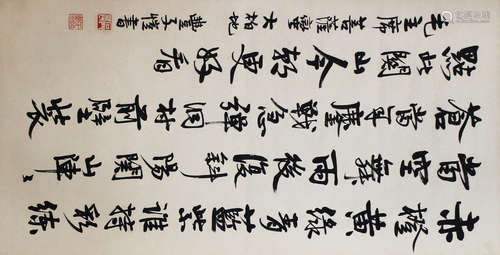 赤橙黃綠青藍紫誰持彩練
當空舞雨後復斜陽關山陣々
蒼當年鏖戰急彈洞前村壁裝
點此關山今朝更好看
毛主席菩薩蠻大柏地 豐子愷書